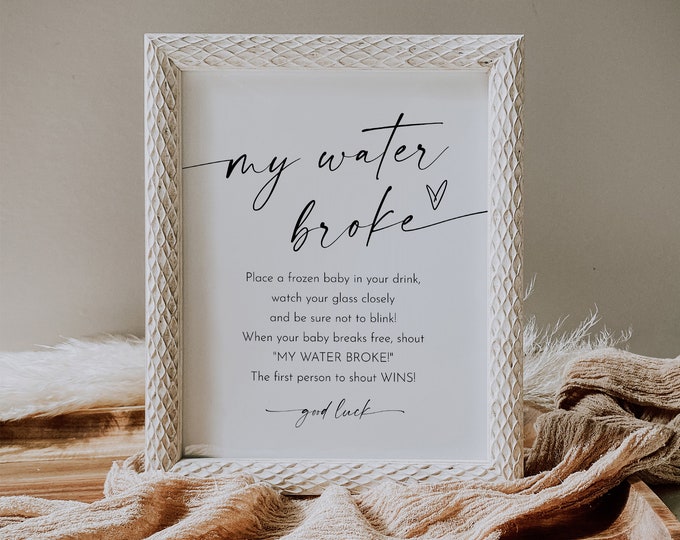 my water
broke
Place a frozen baby in your drink,
watch your glass closely
and be sure not to blink!
When your baby breaks free, shout
"MY WATER BROKE!"
The first person to shout WINS!
good luck